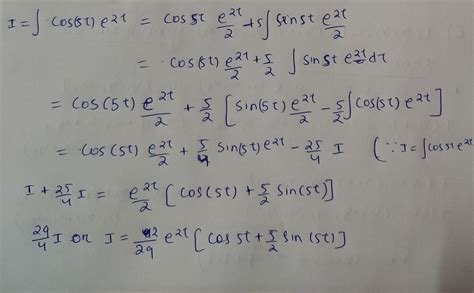 I = ∫ cos(5t) e^{2t} = cos 5t e^{2t}/2 + 5∫ sin 5t e^{2t}/2
= cos(5t) e^{2t}/2 + 5/2 ∫ sin 5t e^{2t} dt
= cos(5t) e^{2t}/2 + 5/2 [ sin(5t) e^{2t}/2 - 5/2 ∫ cos(5t) e^{2t} ]
= cos(5t) e^{2t}/2 + 5/4 sin(5t) e^{2t} - 25/4 I (∵ I = ∫ cos 5t e^{2t}
I + 25/4 I = e^{2t}/2 [ cos(5t) + 5/2 sin(5t) ]
29/4 I or I = 2/29 e^{2t} [ cos 5t + 5/2 sin(5t) ]